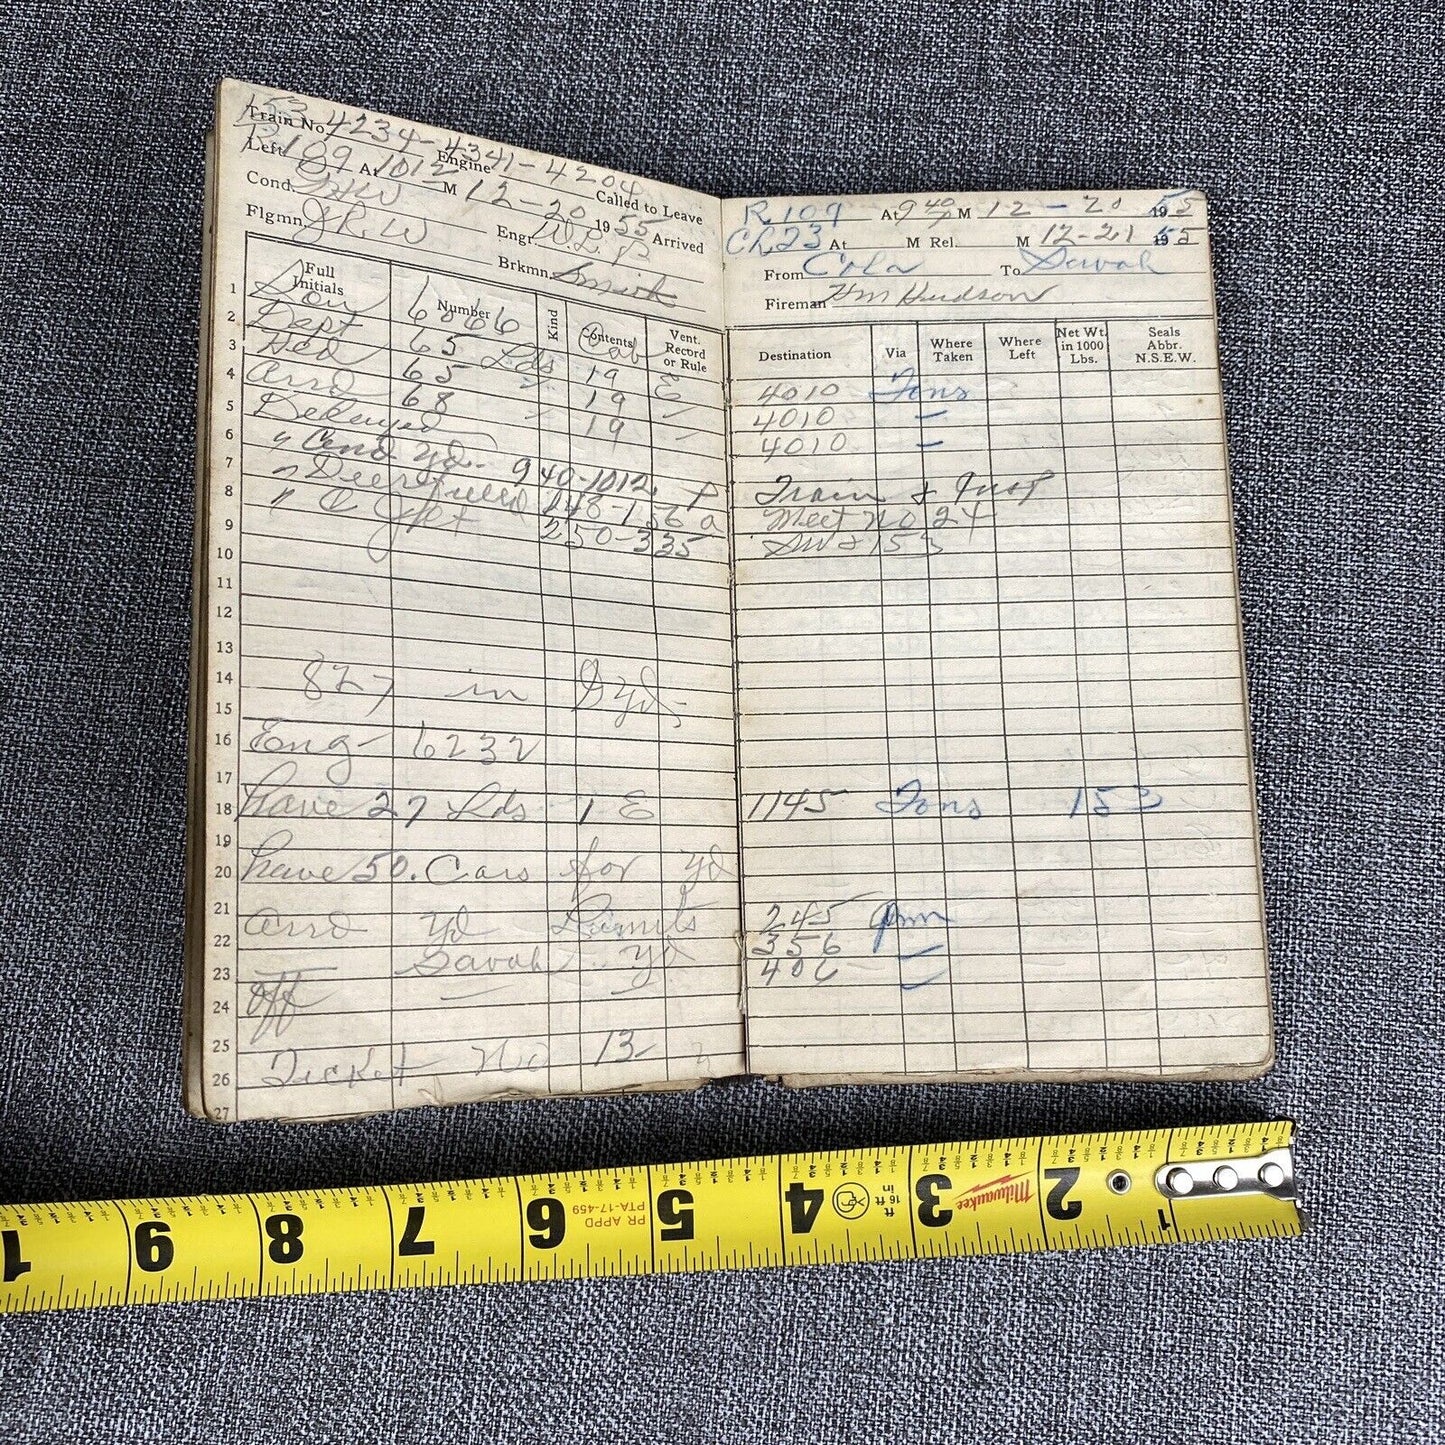 153 4234-4341-4204
Train No. Engine Called to Leave
R 109 1012 12-20 55
Left At M 19 Arrived
Cond. Engr. W.L.
Flgmn. J R W Brkmn. Smith
Full Initials Number Kind Contents Vent. Record or Rule
1 Sou 6066 Cab
2 Dept 65 Lds 19 E
3 65 " 19 "
4 Arrd 68 " 19 "
5 Delayed
6 " Cond Yd. 940-1012 P
7 " Deerfield 148-156 a
8 " C Jct 250-335
9
10
11
12
13
14 827 in Yd
15
16 Eng- 6232
17
18 have 27 Lds 1 E
19
20 have 50. Cars for yd
21
22 Arrd Yd Limits
23 Savah Yd
24 off
25
26 Ticket No 13
27
R 109 At 9 40 M 12-20 1955
Ch 23 At M Rel. M 12-21 1955
From Cola To Savah
Fireman HM Hudson
Destination Via Where Taken Where Left Net Wt. in 1000 Lbs. Seals Abbr. N.S.E.W.
4010 Tons
4010 "
4010 "
Train & Inst
Meet No 24
153
1145 Tons 153
245 pm
356 "
406 "
1 9 8 7 6 PR APPD PTA-17-459 5 4 16 ft ft in 3 Milwaukee 2 1